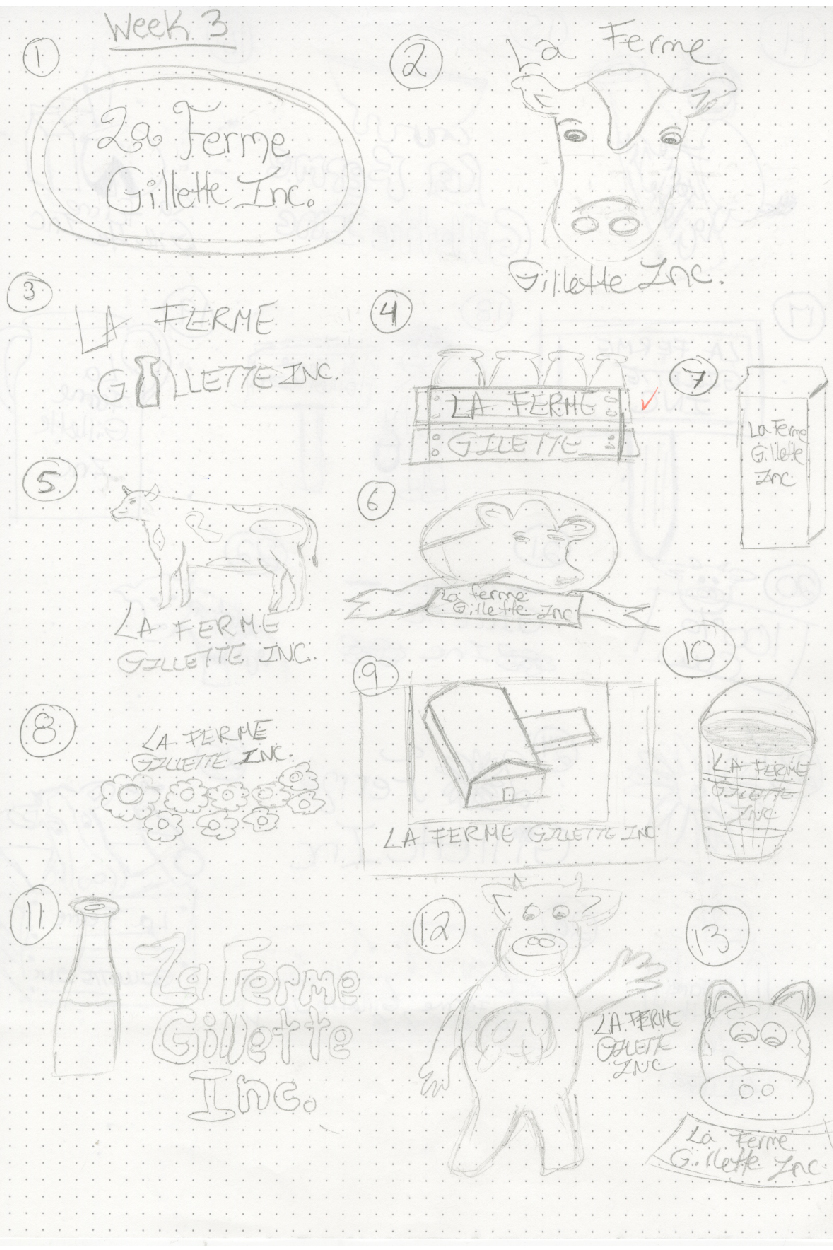 Week 3
1
La Ferme
Gillette Inc.
2
La Ferme
Gillette Inc.
3
LA FERME
GILLETTE INC.
4
LA FERME
GILETTE
7
La Ferme
Gillette
Inc
5
LA FERME
GILLETTE INC.
6
La ferme
Gillette Inc
8
LA FERME
GILLETTE INC.
9
LA FERME GILLETTE INC
10
LA FERME
GILLETTE
INC
11
La Ferme
Gillette
Inc.
12
LA FERME
GILETTE
INC
13
La Ferme
Gillette Inc.